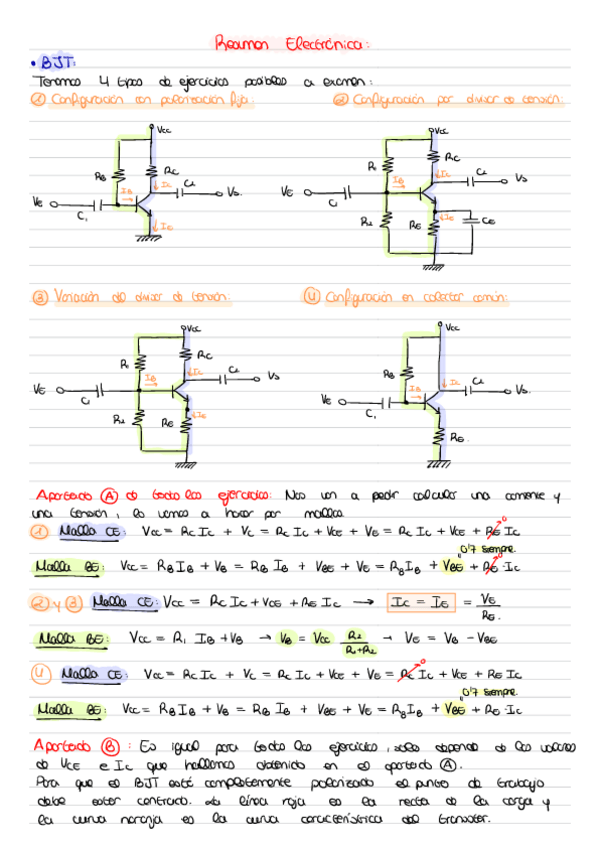 Resumen Electrónica:
• BJT:
Tenemos 4 tipos de ejercicios posibles a examen:
① Configuración con polarización fija:
② Configuración por divisor de tensión:
Vcc
RB
RC
IB
IC
C2
VS
VE
C1
IE
Vcc
R1
RC
IC
C2
VS
VE
IB
C1
R2
RE
IE
CE
③ Variación del divisor de tensión:
④ Configuración en colector común:
Vcc
R1
RC
IB
IC
C2
VS
VE
C1
R2
RE
IE
Vcc
RB
IB
IC
C2
VS
VE
C1
RE
Apartado Ⓐ de todos los ejercicios: Nos van a pedir calcular una corriente y
una tensión, lo vamos a hacer por mallas.
① Malla CE: Vcc = RC IC + VC = RC IC + VCE + VE = RC IC + VCE + RE IC 0
0'7 siempre
Malla BE: Vcc = RB IB + VB = RB IB + VBE + VE = RB IB + VBE + RE · IC 0
② y ③ Malla CE: Vcc = RC IC + VCE + RE IC → IC = IE = VE / RE.
Malla BE: Vcc = R1 IB + VB → VB = Vcc R2 / R1+R2 → VE = VB − VBE
④ Malla CE: Vcc = RC IC + VC = RC IC + VCE + VE = RC IC 0 + VCE + RE IC
0'7 siempre
Malla BE: Vcc = RB IB + VB = RB IB + VBE + VE = RB IB + VBE + RE · IC
Apartado Ⓑ: Es igual para todos los ejercicios, solo depende de los valores
de VCE e IC que hallamos obtenido en el apartado Ⓐ.
Para que el BJT esté completamente polarizado el punto de trabajo
debe estar centrado. La línea roja es la recta de la carga y
la curva naranja es la curva característica del transistor.